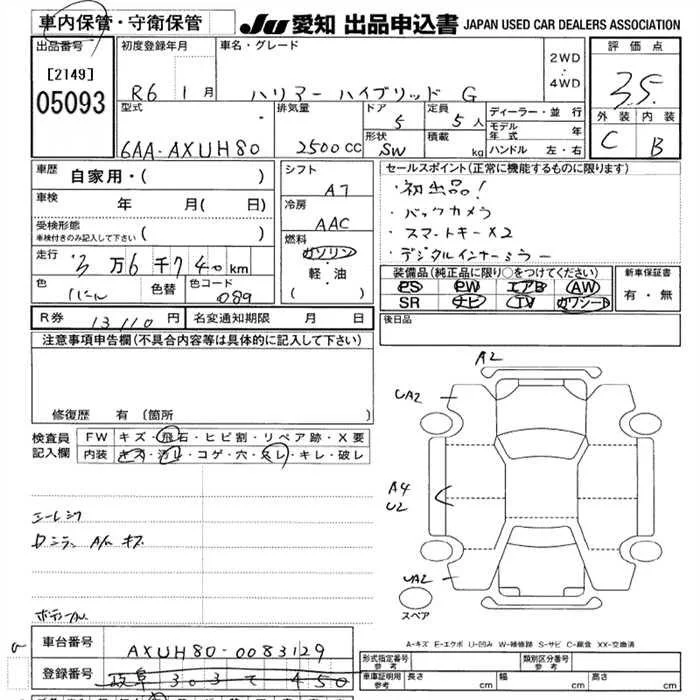 車内保管・守衛保管 JU 愛知 出品申込書 JAPAN USED CAR DEALERS ASSOCIATION
出品番号 初度登録年月 車名・グレード 評価点
[2149] R6 1月 ハリアー ハイブリッド G 2WD・4WD 3.5
05093 型式 排気量 ドア 定員 ディーラー・並行 外装 内装
5 5人 モデル年式 年
6AA-AXUH80 2500CC 形状 SW 積載 kg ハンドル 左・右 C B
車歴 自家用・( ) シフト AT セールスポイント(正常に機能するものに限ります)
車検 年 月( 日) 冷房 AAC ・初出品!
受検形態 ・バックカメラ
車検付きのみ記入して下さい ( ) 燃料 ・スマートキー×2
走行 3万6千740km ガソリン ・デジタルインナーミラー
軽・油 装備品(純正品に限り○をつけてください) 新車保証書
色 色替 色コード ( ) PS PW エアB AW 有・無
089 SR ナビ TV カワシート
R券 13110円 名変通知期限 月 日 後日品
注意事項申告欄(不具合内容等は具体的に記入して下さい)
A2
UA2
修復歴 有(箇所
検査員 FW キズ・飛石・ヒビ割・リペア跡・X要
記入欄 内装 キズ・汚レ・コゲ・穴・スレ・キレ・破レ
A4
U2
UA2
スペア
A-キズ E-エクボ U-凹み W-補修跡 S-サビ C-腐食 XX-交換済
車台番号 AXUH80-0083129
登録番号 岐阜 303 て 450
形式指定番号 参考 類別区分番号 参考
車庫証明用 参考 長さ cm 幅 cm 高さ cm